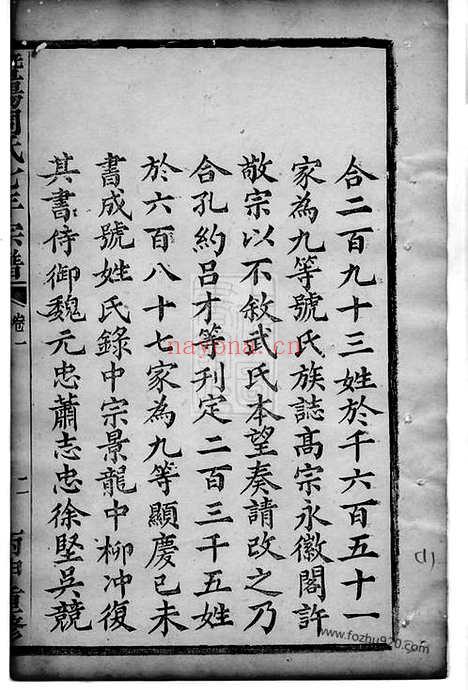 合二百九十三姓於千六百五十一
家為九等號氏族誌高宗永徽閣許
敬宗以不敘武氏本望奏請改之乃
合孔約呂才等刊定二百三千五姓
於六百八十七家為九等顯慶己未
書成號姓氏錄中宗景龍中柳冲復
其書侍御魏元忠蕭志忠徐堅吳競
宗譜
卷一
丙申重修
nayona.cn
www.fozhu920.com